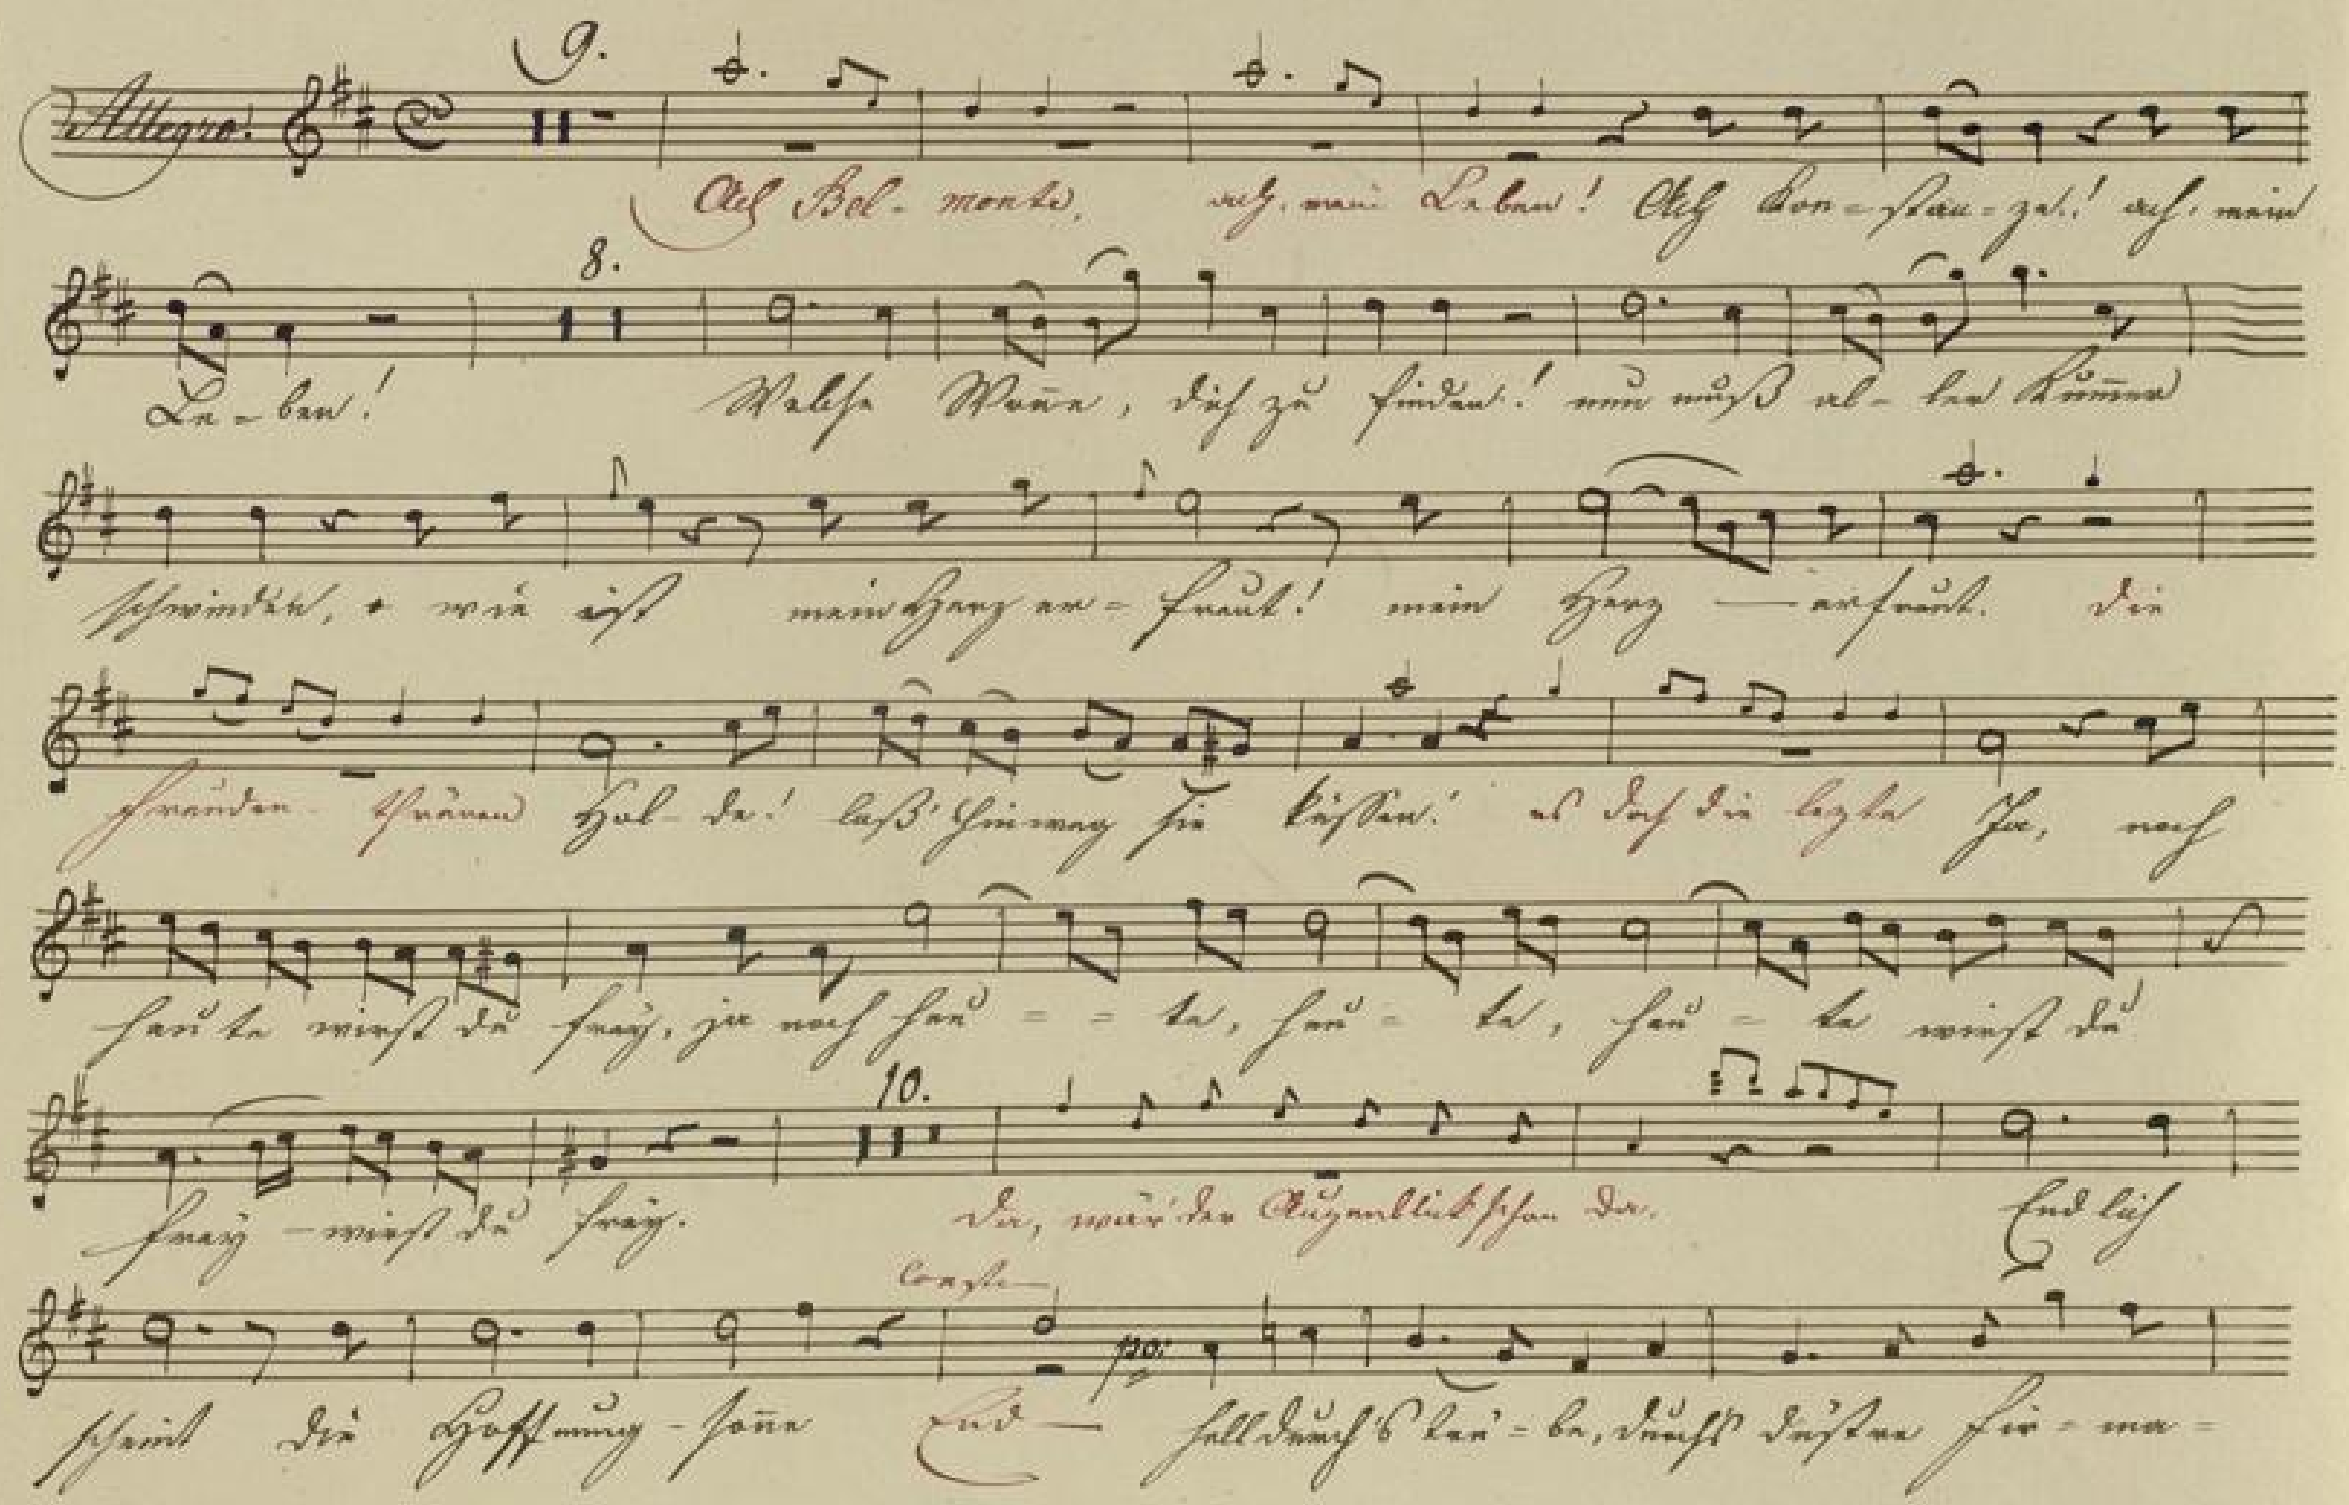 9.
Allegro!
Ach Bel- monte, ach, mein Leben! Ach Kon-stan-ze! ach, mein
8.
Le-ben! Welche Woñe, dich zu finden! nun muß al-ler Kum̄er
schwinden, o wie ist mein Herz er-freut! mein Herz — erfreut. Die
Freuden- thränen Hol-de! laß' hinweg sie küssen! es doch die lezte Ja, noch
heute wirst du frey, ja noch heu - - te, heu - te, heu - te wirst du
10.
frey - wirst du frey. Da, wär' der Augenblick schon da. Endlich
Const.
po:
scheint die Hoffnung-soñe End— hell durch's trü-be, durchs düstre Fir-ma-